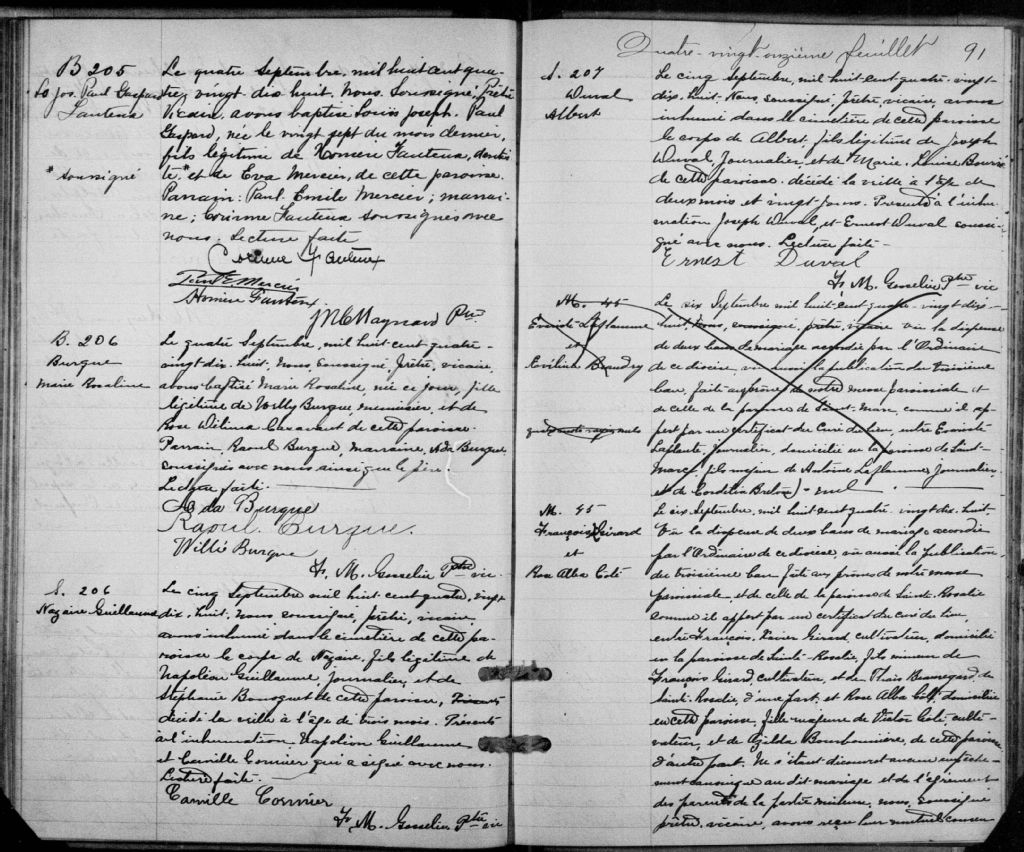 B 205
Ls Jos. Paul Gaspard
Fauteux
* soussigné
Le quatre Septembre, mil huit cent qua-
tre, vingt dix huit. Nous, Soussigné, Prêtre
Vicaire, avons baptisé Louis Joseph. Paul
Gaspard, née le vingt sept du mois dernier,
fils légitime de Homère Fauteux, dentis-
te* et de Eva Mercier, de cette paroisse.
Parrain: Paul. Emile Mercier; marrai-
ne; Corinne Fauteux soussignés avec
nous. Lecture faite
Corinne Fauteux
Paul E. Mercier
Homère Fauteux
J M C Maynard Ptre
B. 206
Burque
Marie Rosaline
Le quatre Septembre, mil huit cent quatre-
vingt. dix. huit. Nous, soussigné, Prêtre, vicaire,
avons baptisé Marie Rosaline, née ce jour, fille
légitime de Willy Burque, menuisier, et de
Rose Wilina Casavant de cette paroisse.
Parrain, Raoul Burque, marraine, Ada Burque,
soussignés avec nous ainsi que le père.
Lecture faite.
Ada Burque
Raoul Burque.
Willé Burque
F. M. Gosselin Ptre vic.
S. 206
Nazaire Guillaume
Le cinq Septembre mil huit cent quatre, vingt
dix. huit. Nous, soussigné, prêtre, vicaire,
avons inhumé dans le cimetière de cette pa-
roisse le corps de Nazaire, fils légitime de
Napoléon Guillaume, journalier, et de
Stéphanie Bousquet de cette paroisse,
décédé la veille à l'âge de trois mois. Présents
à l'inhumation, Napoléon Guillaume
et Camille Cormier qui a signé avec nous.
Lecture faite.
Camille Cormier
F. M. Gosselin Ptre vic
Quatre-vingt-onzième feuillet 91
S. 207
Duval
Albert
Le cinq Septembre, mil huit cent quatre-vingt-
dix. huit. Nous, soussigné, Prêtre, vicaire, avons
inhumé dans le cimetière de cette paroisse
le corps de Albert, fils légitime de Joseph
Duval, Journalier, et de Marie. Louise
de cette paroisse. décédé la veille à l'âge de
deux mois et vingt jours. Présents à l'inhu-
mation Joseph Duval, et Ernest Duval soussi-
gné avec nous. Lecture faite-
Ernest Duval
F. M. Gosselin Ptre vic
M. 45
Evariste Laflamme
et
Evelina Beaudry
Le six Septembre mil huit cent quatre-vingt dix-
huit, Nous, soussigné, prêtre, vicaire vu la dispense
de deux bans de mariage accordée par l'Ordinaire
de ce diocèse, vu aussi la publication du troisième
ban, faite au prône de notre messe paroissiale et
de celle de la paroisse de Saint-Marc, comme il ap-
pert par un certificat du Curé du lieu, entre Evariste
Laflamme, journalier, domicilié en la paroisse de Saint-
Marc, fils majeur de Antoine Laflamme Journalier,
et de Cordélia Breton) - nul
M. 45
François X Girard
et
Rose Alba Coté
Le six, Septembre, mil huit cent quatre. vingt dix. huit-
Vu la dispense de deux bans de mariage accordée
par l'Ordinaire de ce diocèse, vu aussi la publication
du troisième ban faite au prône de notre messe
paroissiale, et de celle de la paroisse de Sainte-Rosalie
comme il appert par un certificat du curé du lieu,
entre François. Xavier Girard, cultivateur, domicilié
en la paroisse de Sainte-Rosalie, fils mineur de
François Girard, cultivateur, et de Thaïs Beauregard de
Sainte-Rosalie, d'une part, et Rose Alba Coté, domiciliée
en cette paroisse, fille majeure de Victor Coté, culti-
vateur, et de Azilda Bourbonnière, de cette paroisse
d'autre part. Ne s'étant découvert aucun empêche-
ment canonique au dit mariage et de l'agrément
des parents de la partie mineure, nous, soussigné
prêtre, vicaire, avons reçu leur mutuel consen